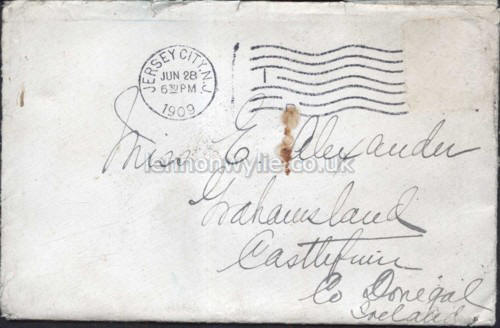 JERSEY CITY, N.J.
JUN 28
6 30 PM
1909
1
Miss E. Alexander
lennonwylie.co.uk
Grahamsland
Castlefinn
Co Donegal
Ireland